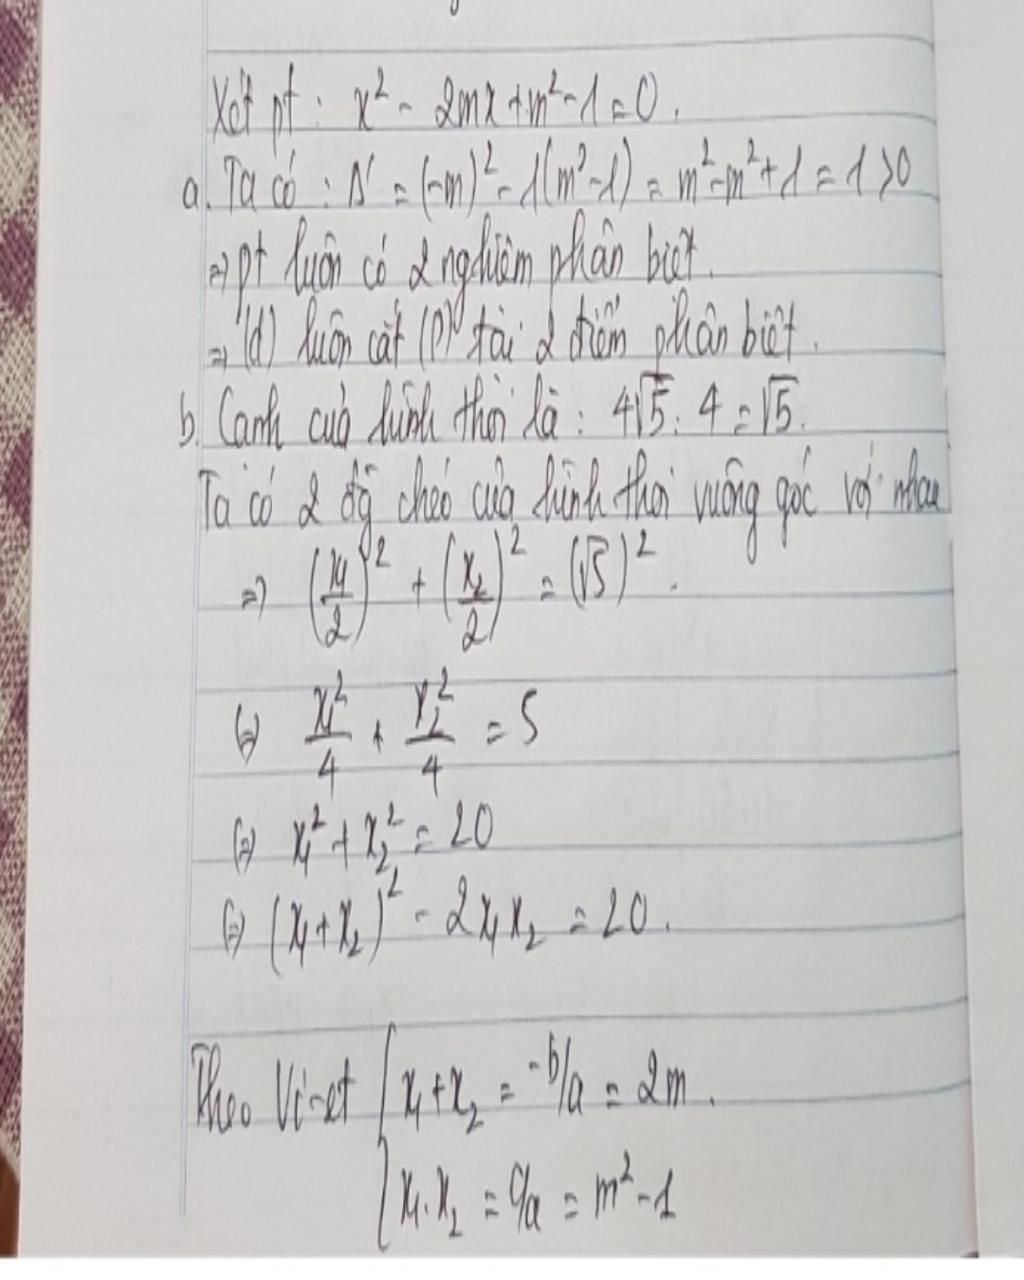 Xét pt : x² - 2mx + m² - 1 = 0 .
a. Ta có : Δ' = (-m)² - 1(m² - 1) = m² - m² + 1 = 1 > 0
⇒ pt luôn có 2 nghiệm phân biệt .
⇒ (d) luôn cắt (P) tại 2 điểm phân biệt .
b. Cạnh của hình thoi là : 4√5 : 4 = √5 .
Ta có 2 đg chéo của hình thoi vuông góc với nhau
⇒ (x₁/2)² + (x₂/2)² = (√5)² .
⇔ x₁²/4 + x₂²/4 = 5
⇔ x₁² + x₂² = 20
⇔ (x₁ + x₂)² - 2x₁x₂ = 20 .
Theo Vi-et { x₁ + x₂ = -b/a = 2m .
x₁ . x₂ = c/a = m² - 1